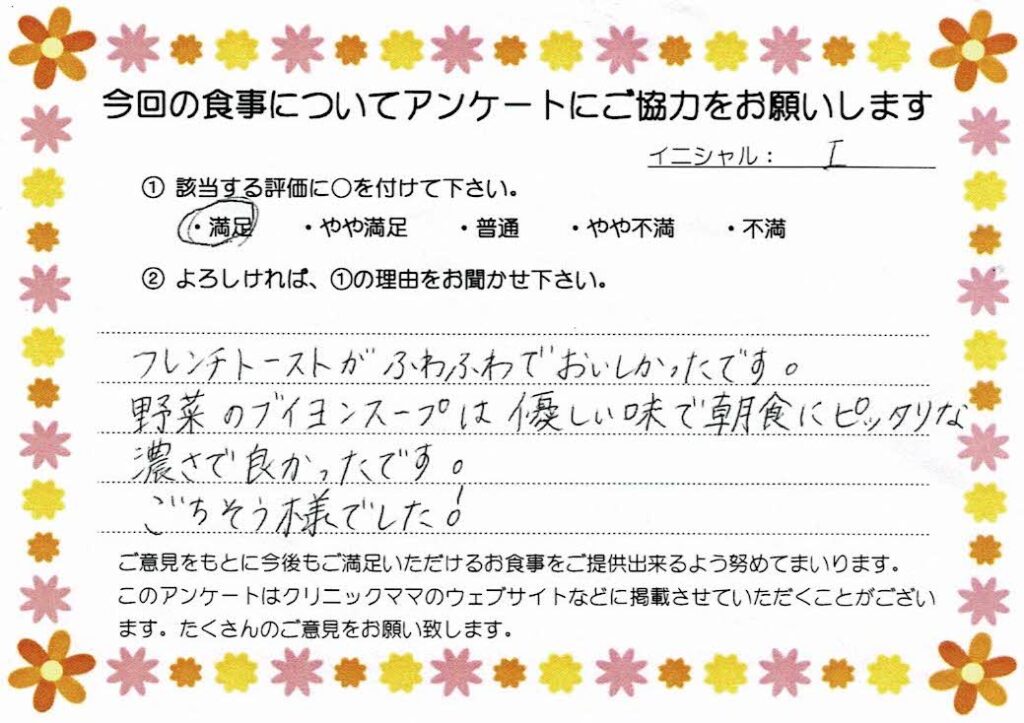 今回の食事についてアンケートにご協力をお願いします
イニシャル： I
① 該当する評価に〇を付けて下さい。
・満足 ・やや満足 ・普通 ・やや不満 ・不満
② よろしければ、①の理由をお聞かせ下さい。
フレンチトーストがふわふわでおいしかったです。
野菜のブイヨンスープは優しい味で朝食にピッタリな
濃さで良かったです。
ごちそう様でした！
ご意見をもとに今後もご満足いただけるお食事をご提供出来るよう努めてまいります。
このアンケートはクリニックママのウェブサイトなどに掲載させていただくことがござい
ます。たくさんのご意見をお願い致します。